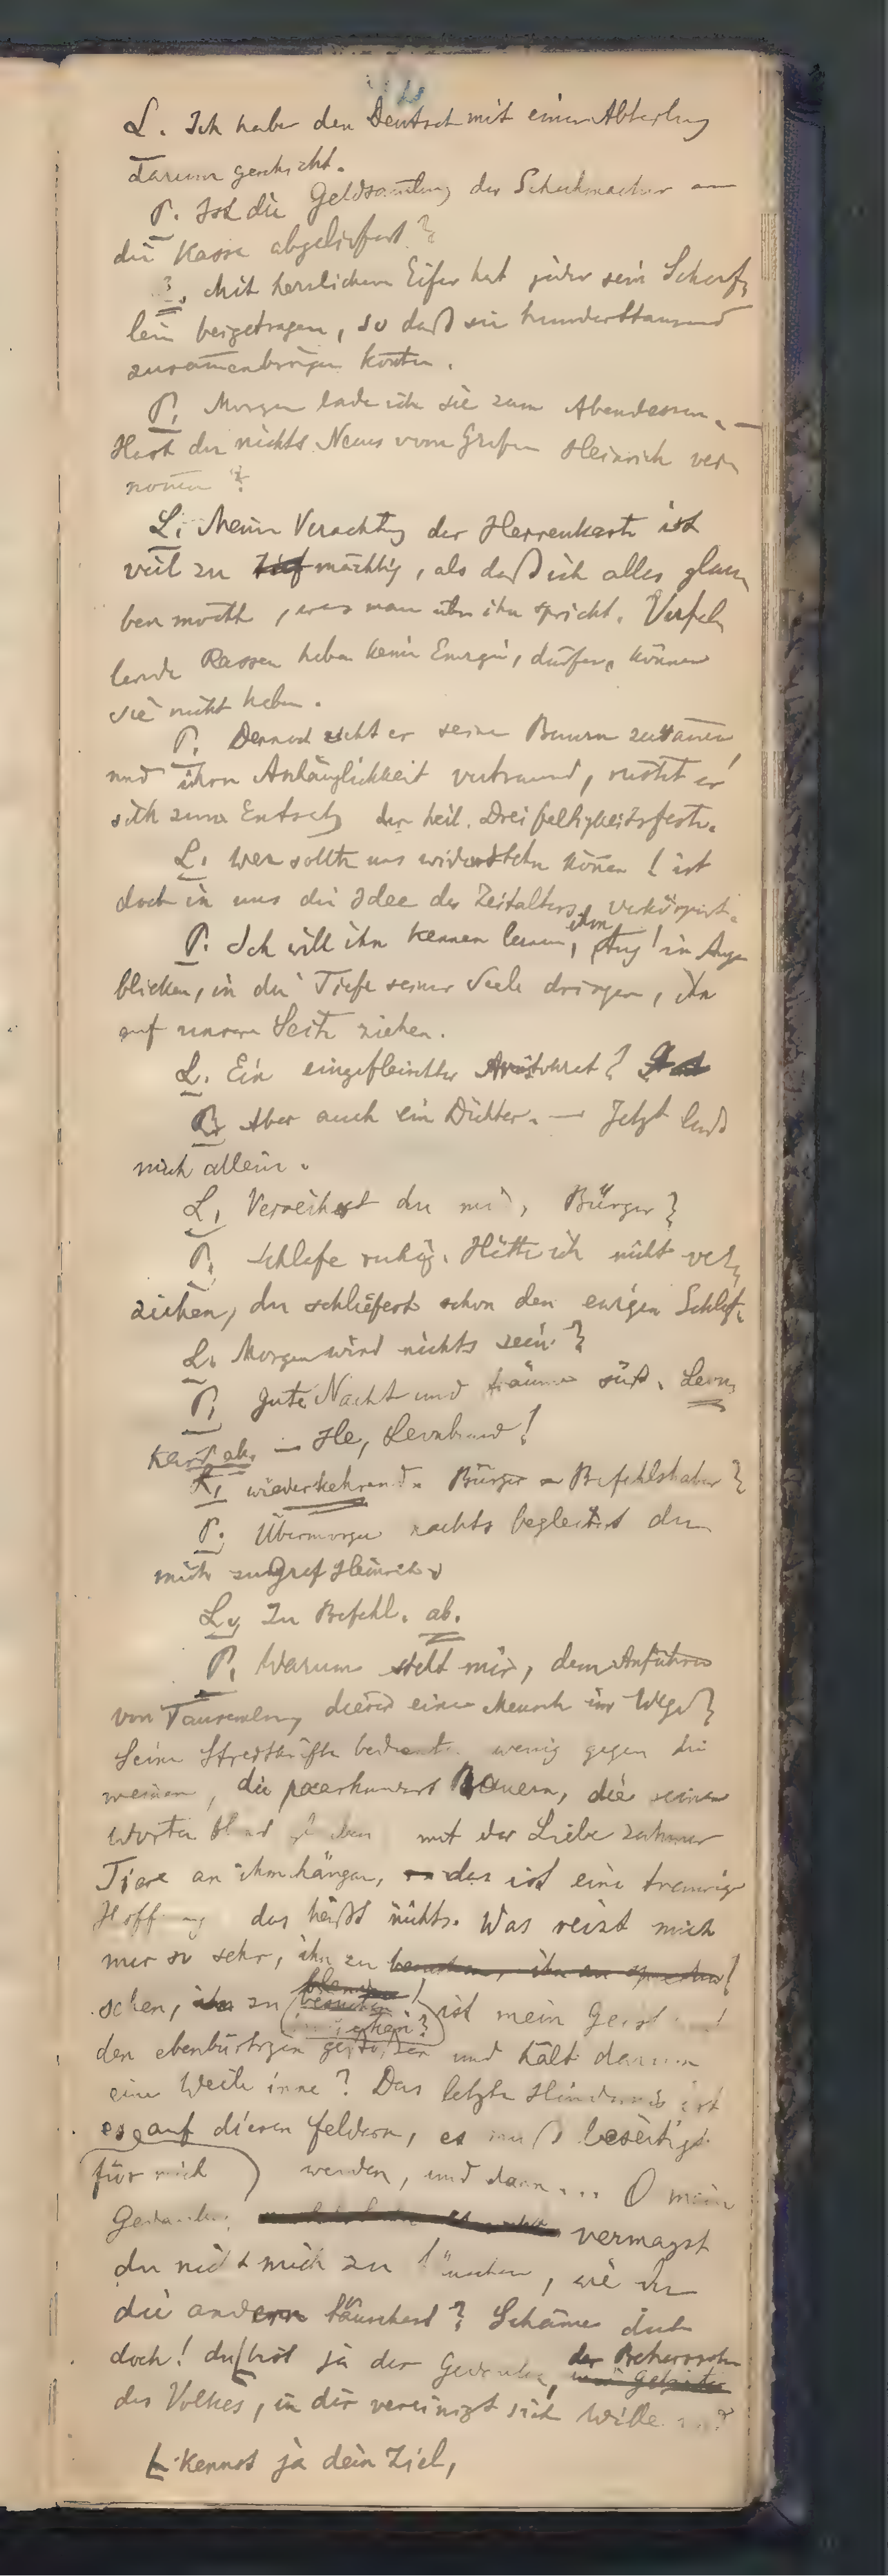 L. Ich habe den Deutsch mit einer Abteilung
darum geschickt.
P. Ist die Geldsam̄lung der Schuhmacher an
die Kasse abgeliefert?
L. Mit herrlichem Eifer hat jeder sein Scherf-
lein beigetragen, so daß sie hunderttausend
zusam̄enbringen kon̄ten.
P. Morgen lade ich sie zum Abendessen. —
Hast du nichts Neues vom Grafen Heinrich ver-
nom̄en?
L. Meine Verachtung der Herrenkaste ist
viel zu tief mächtig, als daß ich alles glau-
ben möchte, was man über ihn spricht. Verfal-
lende Rassen haben keine Energie, dürfen, können
sie nicht haben.
P. Dennoch zieht er seine Bauern zusam̄en,
und ihrer Anhänglichkeit vertrauend, rüstet er
sich zum Entsatz der heil. Dreifaltigkeitsfeste.
L. Wer sollte uns widerstehn kön̄en! ist
doch in uns die Idee des Zeitalters verkörpert.
P. Ich will ihn kennen lernen, ihm Aug' in Auge
blicken, in die Tiefe seiner Seele dringen, ihn
auf unsere Seite ziehen.
L. Ein eingefleischter Aristokrat!
P. Aber auch ein Dichter. — Jetzt laß
mich allein.
L. Verzeihst du mir, Bürger?
P. Schlafe ruhig. Hätte ich nicht ver-
ziehen, du schliefest schon den ewigen Schlaf.
L. Morgen wird nichts sein?
P. Gute Nacht und träume süß. Leon-
hard ab. — He, Leonhard!
L. wiederkehrend. Bürger - Befehlshaber?
P. Übermorgen nachts begleitest du
mich zu Graf Heinrich.
L. Zu Befehl. ab.
P. Warum steht mir, dem Anführer
von Tausenden, dieser eine Mensch im Wege?
Seine Streitkräfte bedeuten wenig gegen die
meinen, die paarhundert Bauern, die seinen
Worten blind glauben mit der Liebe zahmer
Tiere an ihm hängen, das ist eine traurige
Hoffnung das heißt nichts. Was reizt mich
nur so sehr, ihn zu besuchen, ihn zu sprechen!
sehen, ihn zu besuchen! ist mein Geist
den ebenbürtigen gestoßen und hält darum
eine Weile inne? Das letzte Hindernis ist
es auf diesen Feldern, es muß beseitigt
für mich werden, und dann... O mein
Gedanke, vermagst
du nicht mich zu täuschen, wie du
die andern täuschest? Schäme dich
doch! du bist ja der Gedanke, der Beherrscher
des Volkes, in dir vereinigt sich Wille
kennst ja dein Ziel,